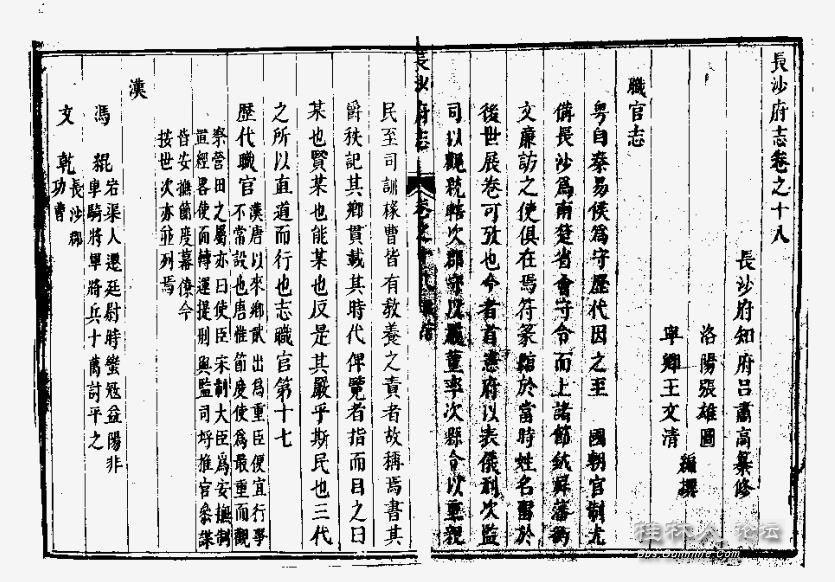 長沙府志卷之十八
長沙府知府呂肅高纂修
洛陽張雄圖
寧鄉王文清
編撰
職官志
粵自秦易侯爲守歷代因之至 國朝官制尤
備長沙爲南楚省會守令而上諸節鉞屏藩
文廉訪之使俱在焉符篆館於當時姓名留於
後世展卷可攷也今者首憲府以表儀列次監
司以觀次郡守以董率次縣令以重親
長沙府志
卷之十八
民至司訓椽曹皆有教養之責者故稱焉書其
爵秩記其鄉貫載其時代俾覽者指而目之曰
某也賢某也能某也反是其嚴乎斯民也三代
之所以直道而行也志職官第十七
歷代職官
漢唐以來鄉貳出爲重臣便宜行事
不常設也唐惟節度使爲最重而觀
察營田之屬亦曰使臣宋制大臣爲安撫制
置經畧使而轉運提刑與監司好推官叅謀
皆安撫節度幕僚今
按世次亦並列焉
漢
馮緄
宕渠人遷廷尉時蠻冦益陽非
車騎將軍將兵十萬討平之
文乾
長沙郡
功曹
桂林人 论坛
bbs.guilinlife.com